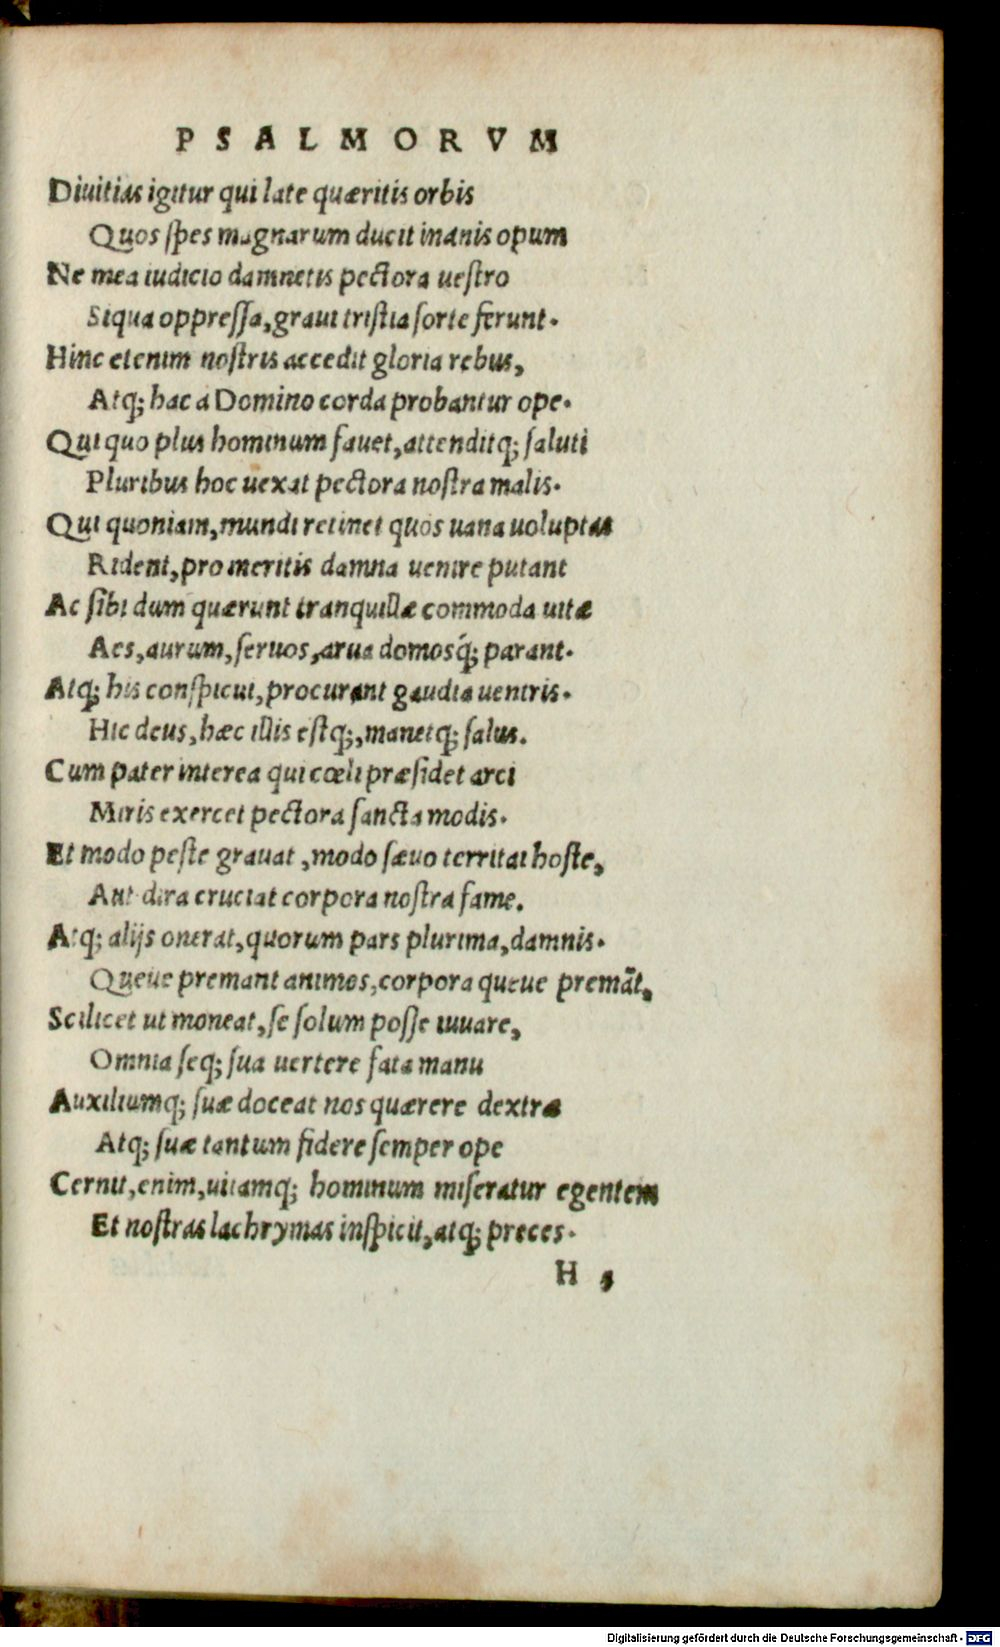 PSALMORVM
Diuitias igitur qui late quæritis orbis
Quos ſpes magnarum ducit inanis opum
Ne mea iudicio damnetis pectora ueſtro
Siqua oppreſſa, graui triſtia ſorte ferunt.
Hinc etenim noſtris accedit gloria rebus,
Atq; hac a Domino corda probantur ope.
Qui quo plus hominum fauet, attenditq; ſaluti
Pluribus hoc uexat pectora noſtra malis.
Qui quoniam, mundi retinet quos uana uoluptas
Rident, pro meritis damna uenire putant
Ac ſibi dum quærunt tranquillæ commoda uitæ
Aes, aurum, ſeruos, arua domosq́; parant.
Atq; his conſpicui, procurant gaudia uentris.
Hic deus, hæc illis eſtq;, manetq; ſalus.
Cum pater interea qui cœli præſidet arci
Miris exercet pectora ſancta modis.
Et modo peſte grauat, modo ſæuo territat hoſte,
Aut dira cruciat corpora noſtra fame.
Atq; alijs onerat, quorum pars plurima, damnis.
Queue premant animos, corpora queue premāt,
Scilicet ut moneat, ſe ſolum poſſe iuuare,
Omnia ſeq; ſua uertere fata manu
Auxiliumq; ſuæ doceat nos quærere dextræ
Atq; ſuæ tantum fidere ſemper ope
Cernit, enim, uitamq; hominum miſeratur egentem
Et noſtras lachrymas inſpicit, atq; preces.
H 5
Digitalisierung gefördert durch die Deutsche Forschungsgemeinschaft - DFG